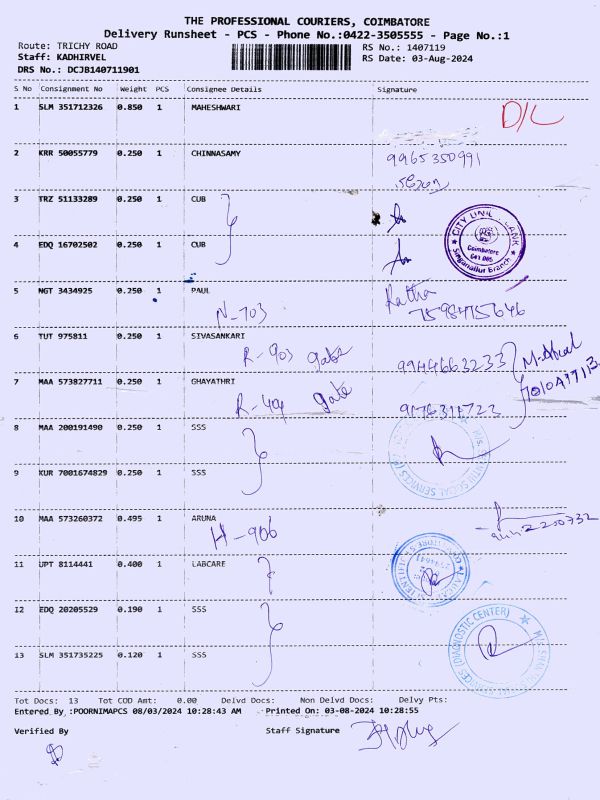 THE PROFESSIONAL COURIERS, COIMBATORE
Delivery Runsheet - PCS - Phone No.:0422-3505555 - Page No.:1
Route: TRICHY ROAD RS No.: 1407119
Staff: KADHIRVEL RS Date: 03-Aug-2024
DRS No.: DCJB140711901
S No Consignment No Weight PCS Consignee Details Signature
1 SLM 351712326 0.850 1 MAHESHWARI D/L
2 KRR 50055779 0.250 1 CHINNASAMY 9965350991
3 TRZ 51133289 0.250 1 CUB
4 EDQ 16702502 0.250 1 CUB
CITY UNION BANK
Coimbatore
641 005
Singanallur Branch
5 NGT 3434925 0.250 1 PAUL
N-703 7598475646
6 TUT 975811 0.250 1 SIVASANKARI
R-903 gate 9944663233
7 MAA 573827711 0.250 1 GHAYATHRI
R-404 gate 9176311723
8 MAA 200191490 0.250 1 SSS
9 KUR 7001674829 0.250 1 SSS
10 MAA 573260372 0.495 1 ARUNA
H-906
11 UPT 8114441 0.400 1 LABCARE
12 EDQ 20205529 0.190 1 SSS
(DIAGNOSTIC CENTER)
13 SLM 351735225 0.120 1 SSS
Tot Docs: 13 Tot COD Amt: 0.00 Delvd Docs: Non Delvd Docs: Delvy Pts:
Entered By :POORNIMAPCS 08/03/2024 10:28:43 AM Printed On: 03-08-2024 10:28:55
Verified By Staff Signature